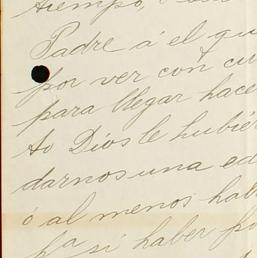 tiempo, o
Padre á el qu
por ver con cu
para llegar hace
to Dios le hubiér
darnos una ed
ó al menos hab
pa si haber po